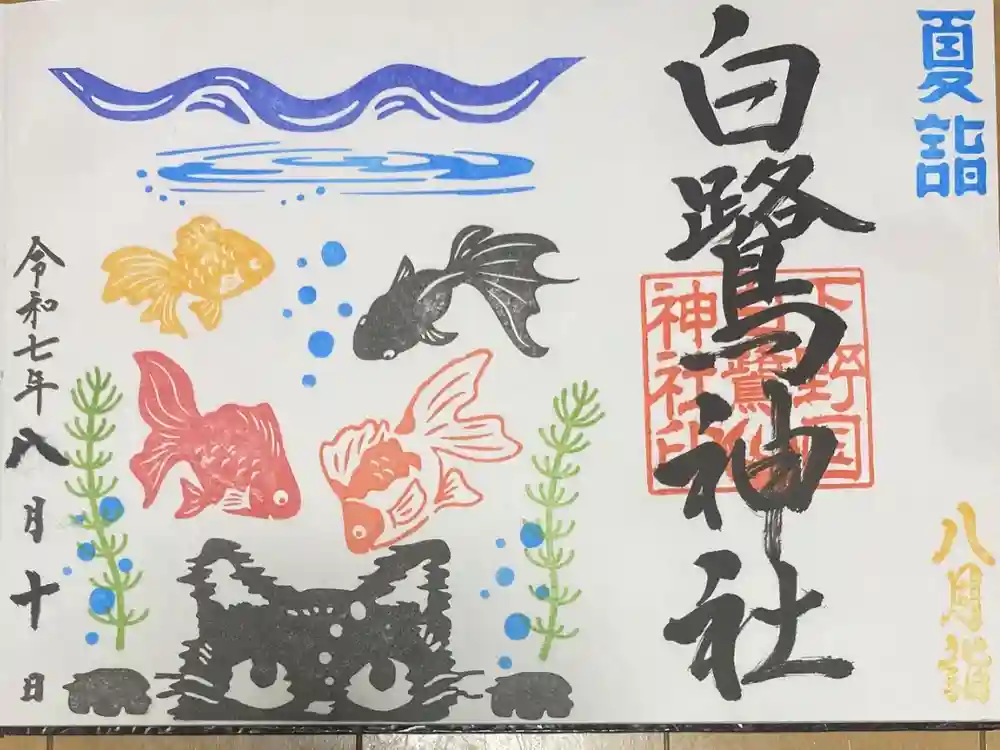 夏詣
白鷺神社
下野国
白鷺
神社印
八月詣
令和七年八月十日